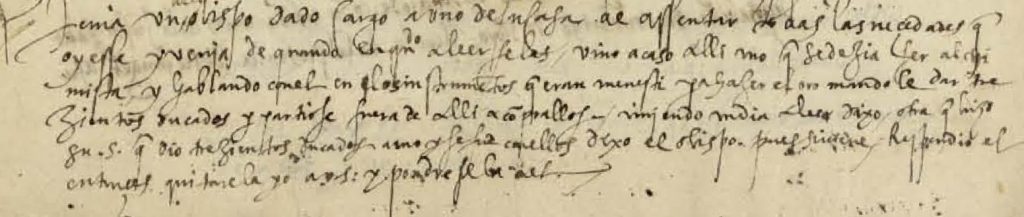 Tenia un obispo dado cargo a uno de su casa de assentar todas las necedades q
oyesse y venia de quando en qndo a leerselas, vino acaso alli uno q se dezia ser alchi
mista, y hablando conel en los instrumētos q eran menester pa hazer el oro mandole dar tre
zientos ducados y partiose fuera de alli a cōprallos. viniendo un dia a leer dixo, otra q hizo
su .S. q dio trezientos ducados a uno y se fue conellos dixo el obispo. pues si viene, Respondio el
entonces quitarela yo a v.S. y pondresela a el.